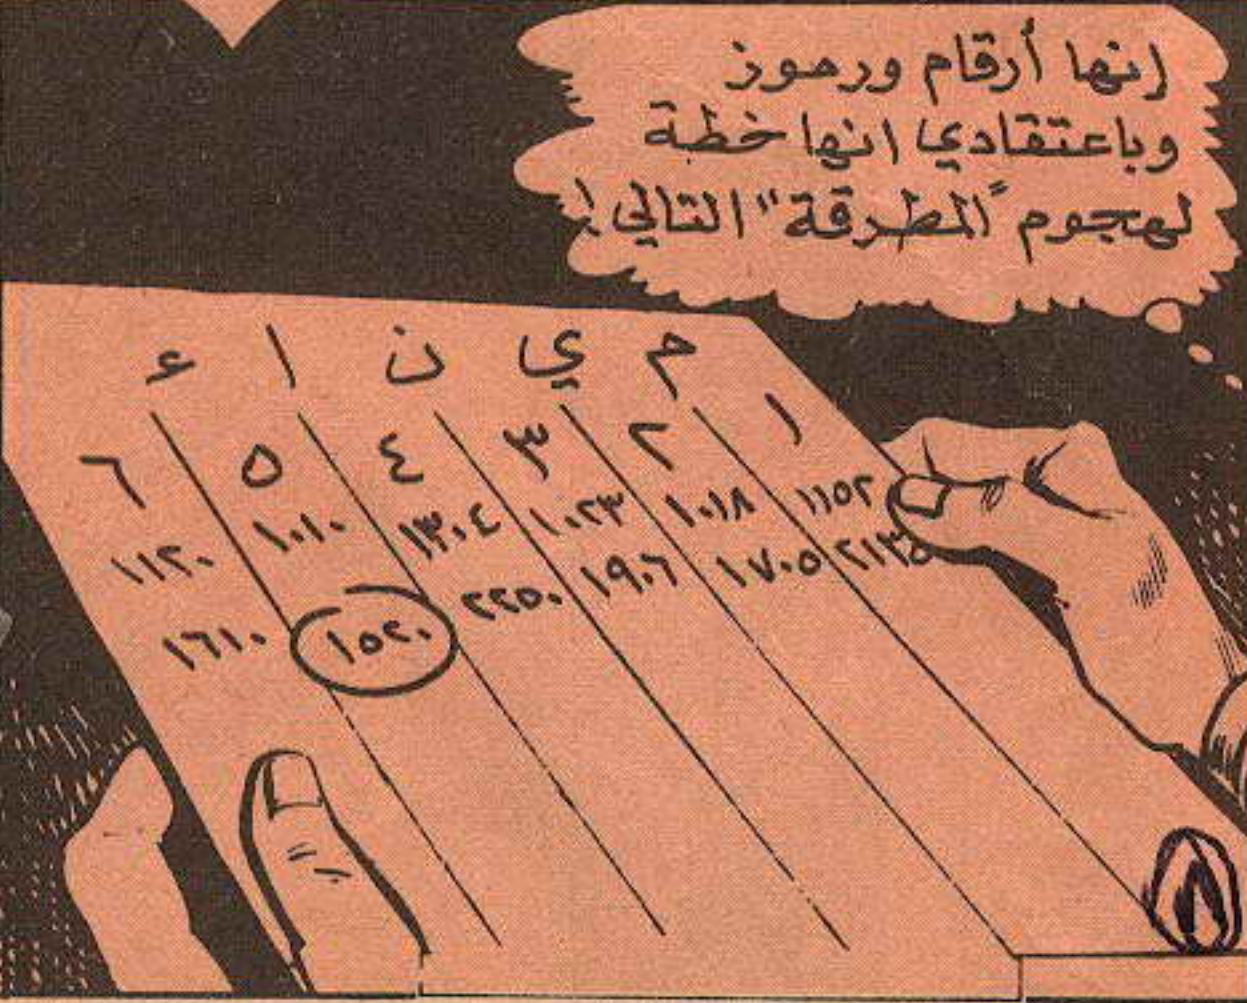 إنها أرقام ورموز
وباعتقادي انها خطة
لهجوم "المطرقة" التالي!
م ي ن ا ء
١ ٢ ٣ ٤ ٥ ٦
١١٥٢ ١٠١٨ ١٠٢٣ ١٣٠٤ ١٠١٠ ١١٢٠
٢١٣٥ ١٧٠٥ ١٩٠٦ ٢٢٥٠ ١٥٢٠ ١٦١٠
٨